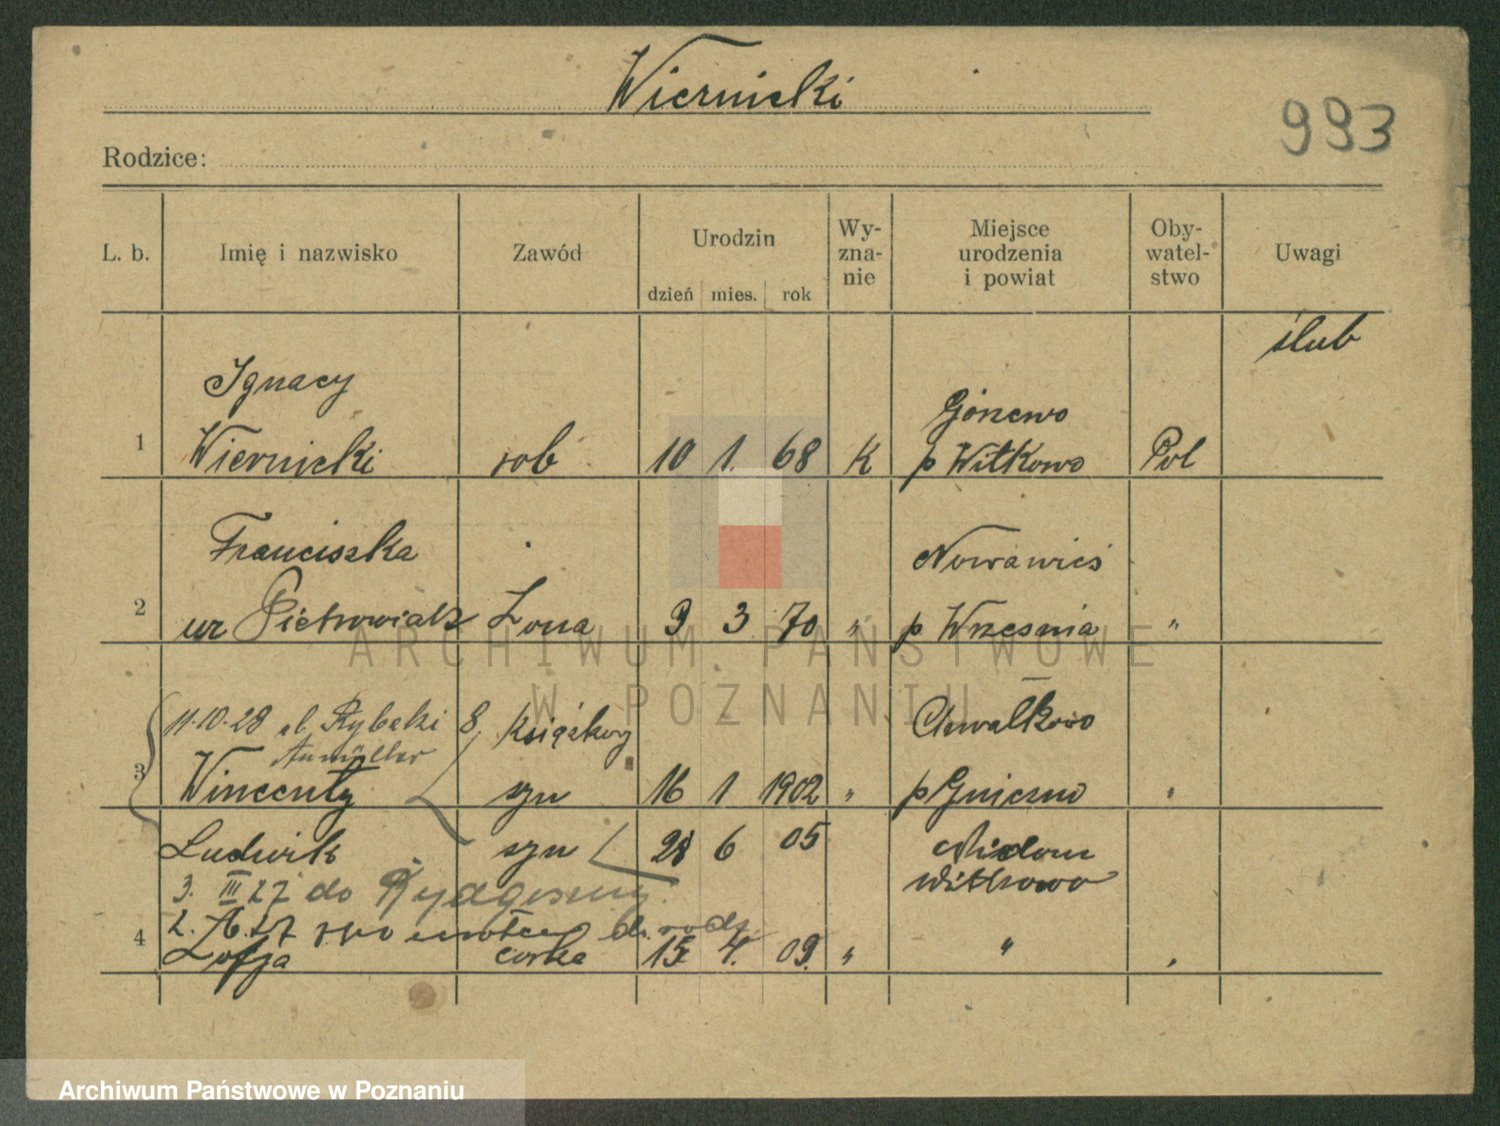 Wiernicki
993
Rodzice:
L. b. Imię i nazwisko Zawód Urodzin dzień mies. rok Wy-zna-nie Miejsce urodzenia i powiat Oby-watel-stwo Uwagi
ślub
Ignacy Górzewo
1 Wiernicki rob 10 1. 68 K p Witkowo Pol
Franciszka Nowawieś
2 ur Pietrowiak Żona 9 3 70 " p Września "
11.10.28 ul. Rybaki 8 Książkowy Chwałkowo
3 Wincenty syn 16 1 1902 " p Gniezno "
Ludwik syn 28 6 05
Witkowo
3. III 27 do Bydgoszczy
do rodz.
4 Zofja córka 15. 4. 09. " " "
ARCHIWUM PAŃSTWOWE
W POZNANIU
Archiwum Państwowe w Poznaniu